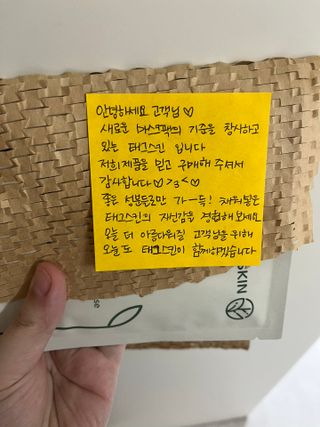 안녕하세요 고객님♡
새로운 마스크팩의 기준을 창시하고
있는 태그스킨 입니다
저희제품을 믿고 구매해 주셔서
감사합니다♡>3<♡
좋은 성분들로만 가-득! 채워넣은
태그스킨의 자신감을 경험해보세요
오늘 더 아름다워질 고객님을 위해
오늘도 태그스킨이 함께하겠습니다
SKIN